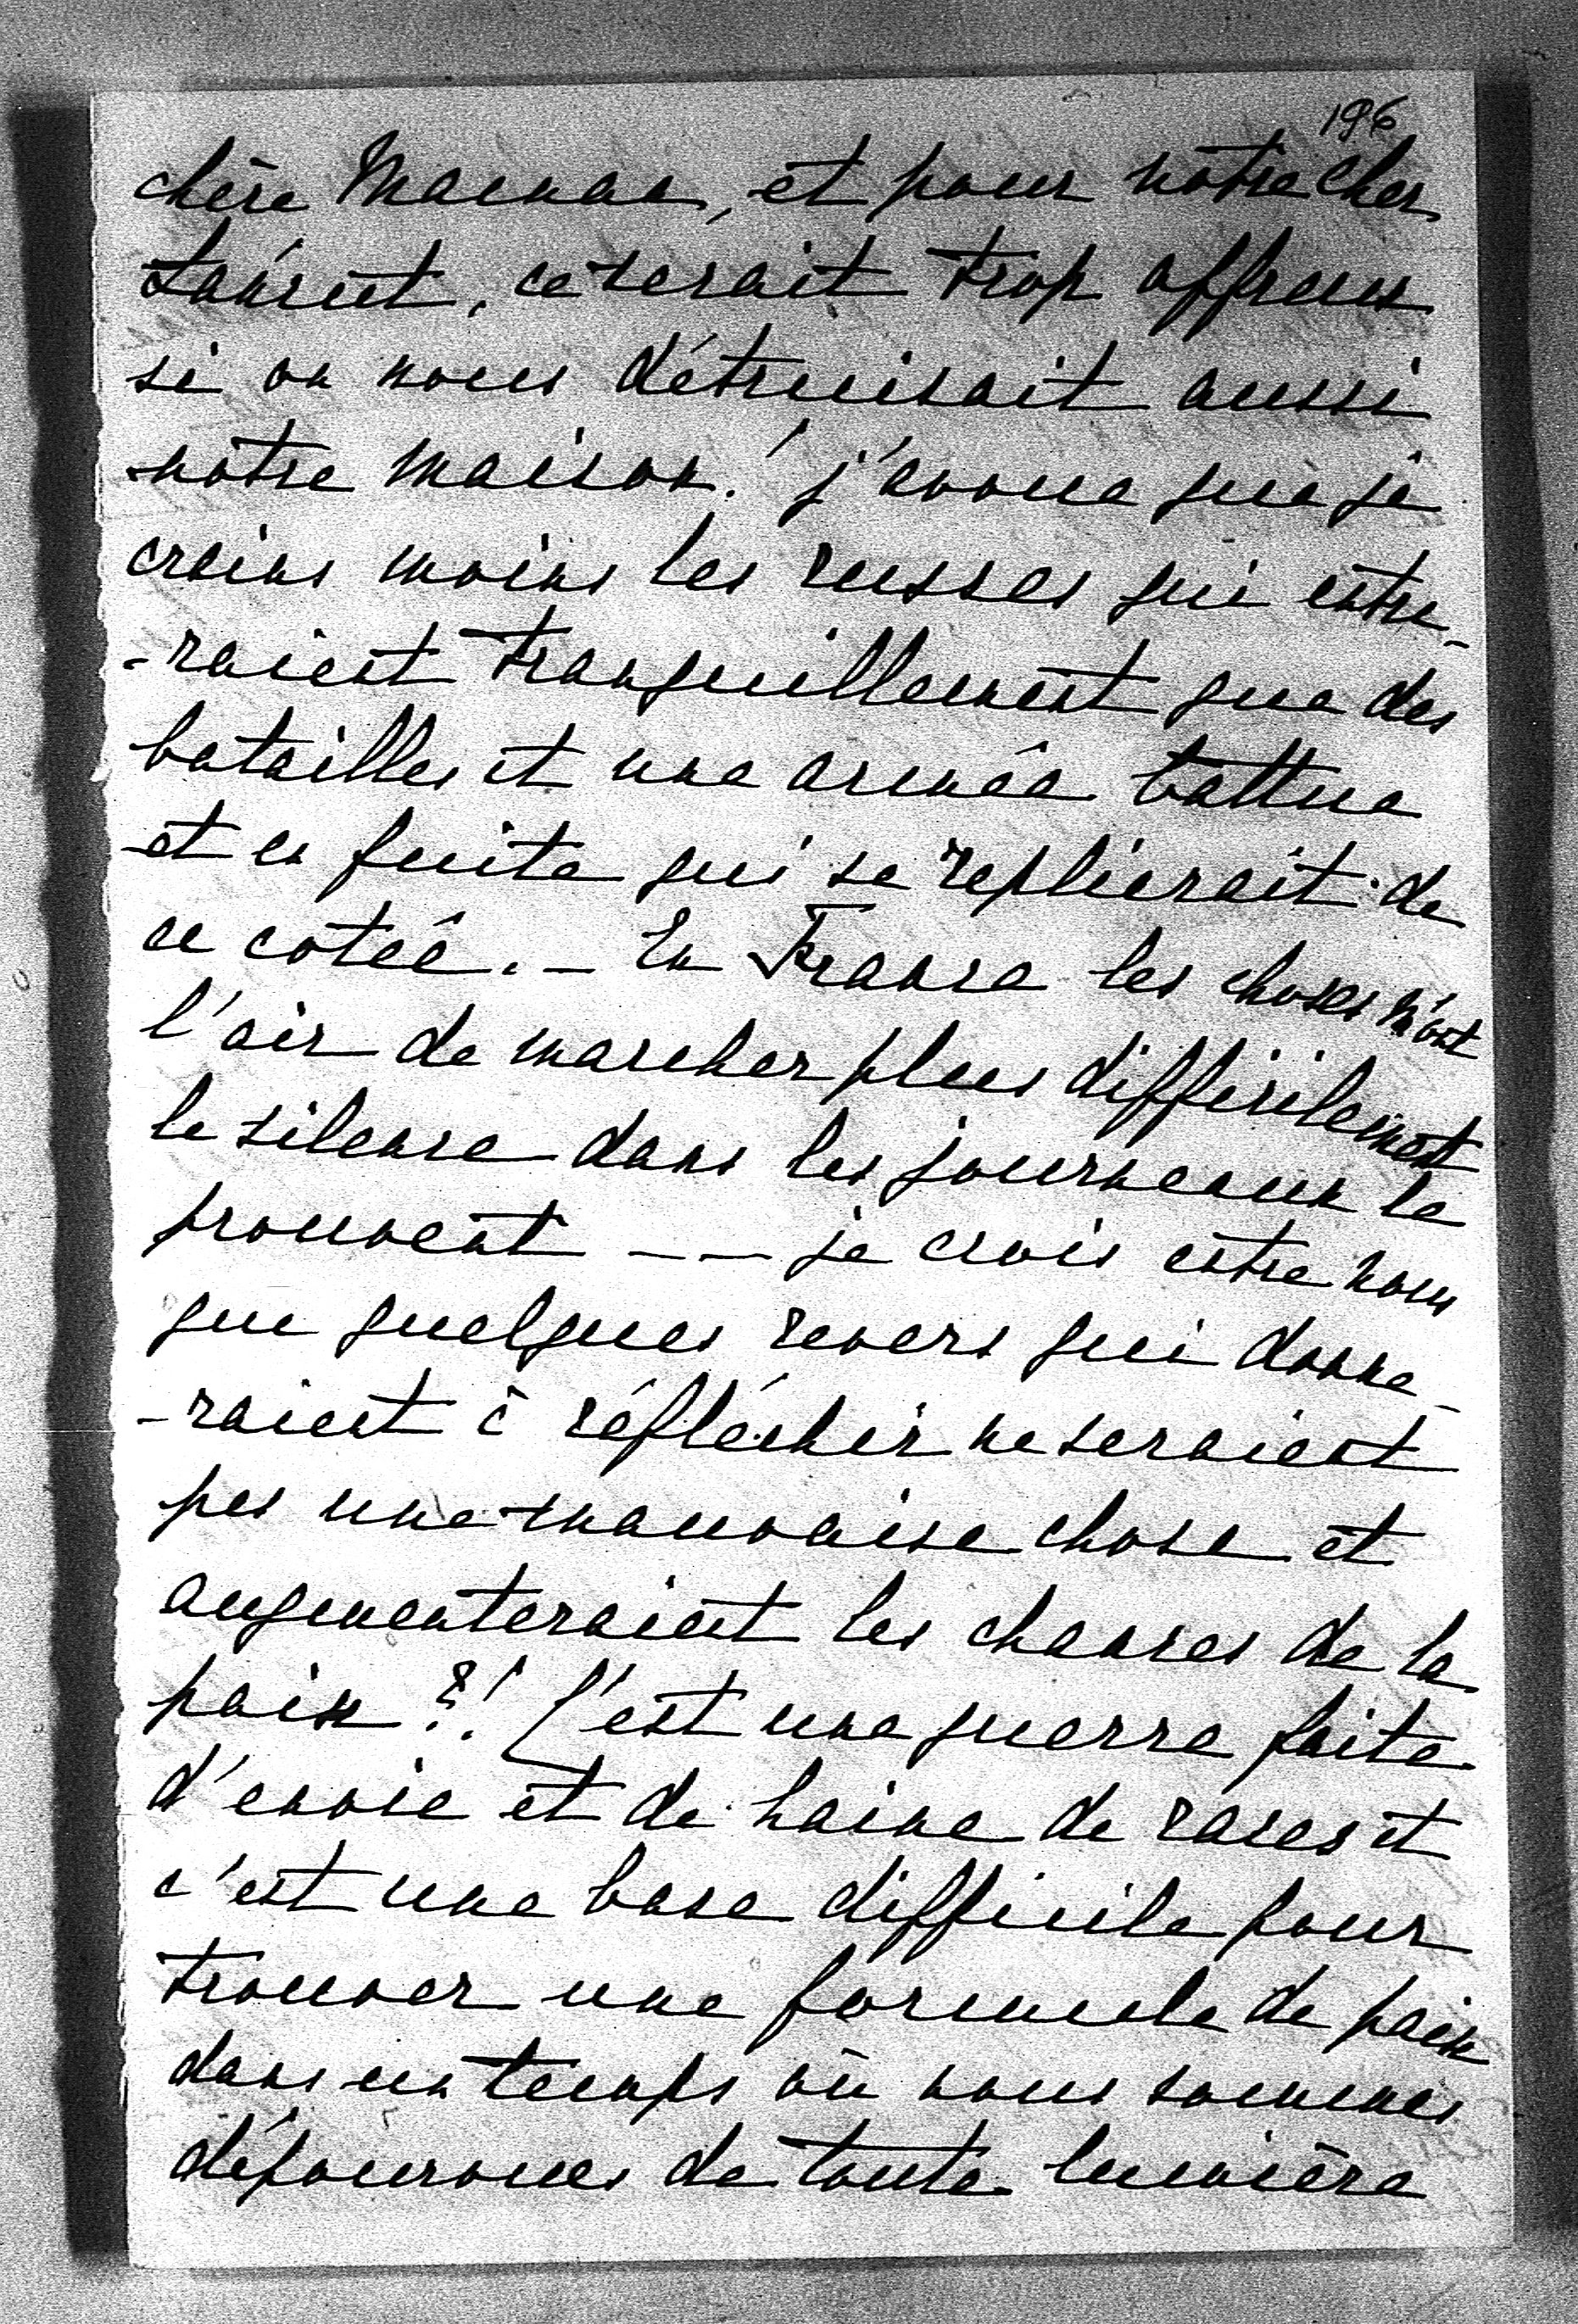 196
chère Maman, et pour notre cher
Łańcut, ce serait trop affreux
si on nous détruisait aussi
notre maison! j'avoue que je
crains moins les russes qui entre-
-raient tranquillement que des
batailles et une armée battue
et en fuite qui se replierait de
ce côtéé. — En France les choses m'ont
l'air de marcher plus difficilement
le silence dans les journaux le
prouvent — — je crois entre nous
que quelques revers qui donne-
-raient à réfléchir ne seraient
pas une mauvaise chose et
augmenteraient les chances de la
paix?! C'est une guerre faite
d'envie et de haine de races et
c'est une base difficile pour
trouver une formule de paix
dans un temps où nous sommes
dépourvues de toute lumière